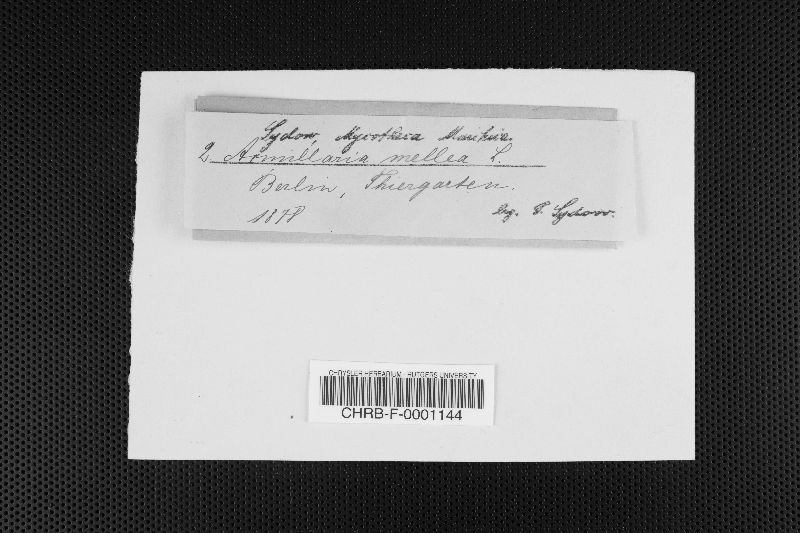 Sydow, Mycotheca Marchica.
2. Armillaria mellea L.
Berlin, Thiergarten.
1878 leg. P. Sydow.
CHRYSLER HERBARIUM - RUTGERS UNIVERSITY
CHRB-F-0001144